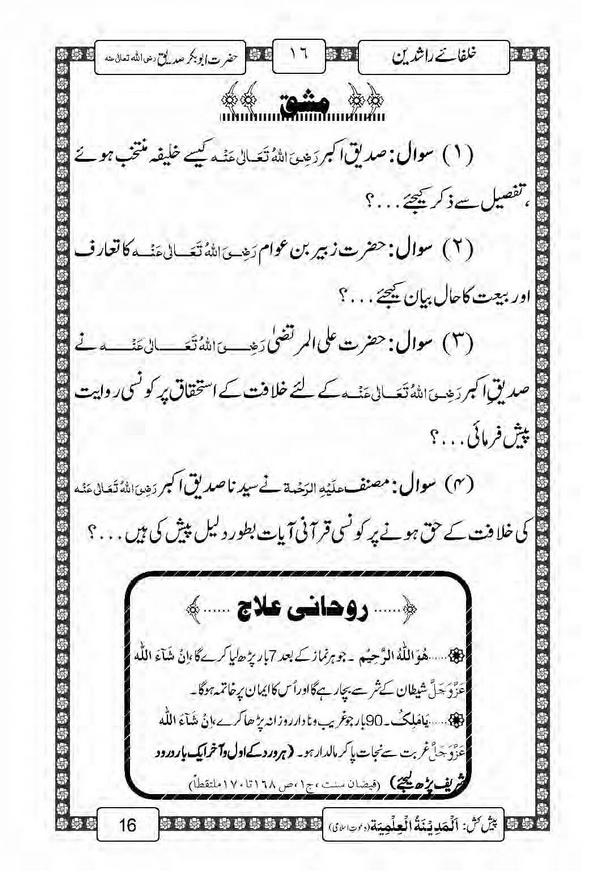 خلفائے راشدین
۱٦
حضرت ابوبکر صدیق رضی اللہ تعالیٰ عنہ
مشق
(۱) سوال: صدیق اکبر رَضِیَ اللہُ تَعَالیٰ عَنْہ کیسے خلیفہ منتخب ہوئے
،تفصیل سے ذکر کیجئے...؟
(۲) سوال: حضرت زبیر بن عوام رَضِیَ اللہُ تَعَالیٰ عَنْہ کا تعارف
اور بیعت کا حال بیان کیجئے...؟
(۳) سوال: حضرت علی المرتضیٰ رَضِیَ اللہُ تَعَالیٰ عَنْہ نے
صدیقِ اکبر رَضِیَ اللہُ تَعَالیٰ عَنْہ کے لئے خلافت کے استحقاق پر کونسی روایت
پیش فرمائی...؟
(۴) سوال: مصنف علَیْہِ الرَحْمۃ نے سیدنا صدیق اکبر رَضِیَ اللہُ تَعَالیٰ عَنْہ
کی خلافت کے حق ہونے پر کونسی قرآنی آیات بطور دلیل پیش کی ہیں...؟
......روحانی علاج......
......ھُوَ اللہُ الرَّحِیْم ۔ جو ہر نماز کے بعد 7 بار پڑھ لیا کرے گا، اِنْ شَآءَ اللہ
عَزَّوَجَلَّ شیطان کے شر سے بچا رہے گا اور اُس کا ایمان پر خاتمہ ہوگا۔
......یَامَلِکُ۔ 90 بار جو غریب و نادار روزانہ پڑھا کرے، اِنْ شَآءَ اللہ
عَزَّوَجَلَّ غربت سے نجات پا کر مالدار ہو۔ (ہر ورد کے اول و آخر ایک بار درود
شریف پڑھ لیجئے) (فیضان سنت، ج۱، ص ۱٦۸ تا ۱۷۰ ملتقطاً)
پیش کش: اَلْمَدِیْنَۃُ الْعِلْمِیَۃ (دعوتِ اسلامی)
16